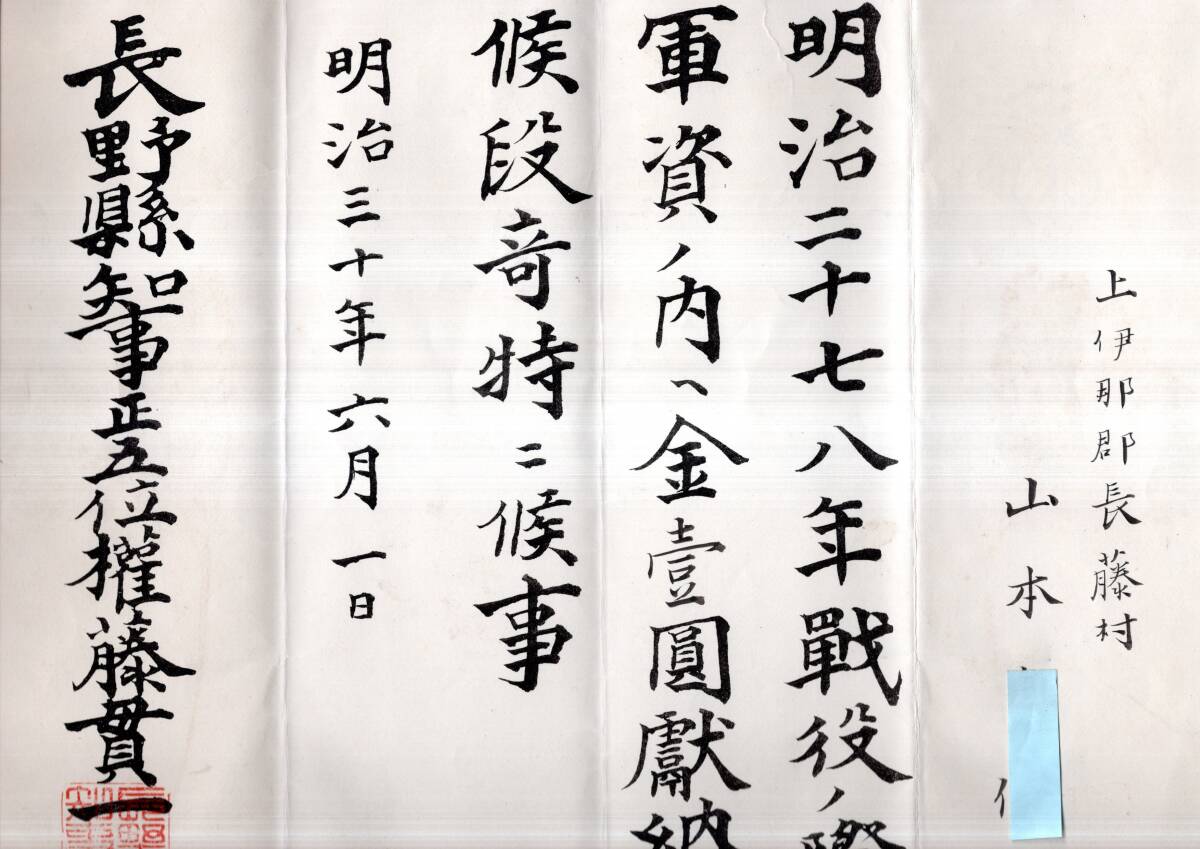 上伊那郡長藤村
山本
明治二十七八年戰役ノ際
軍資ノ内ヘ金壹圓獻納
候段竒特ニ候事
明治三十年六月一日
長野縣知事正五位權藤貫一